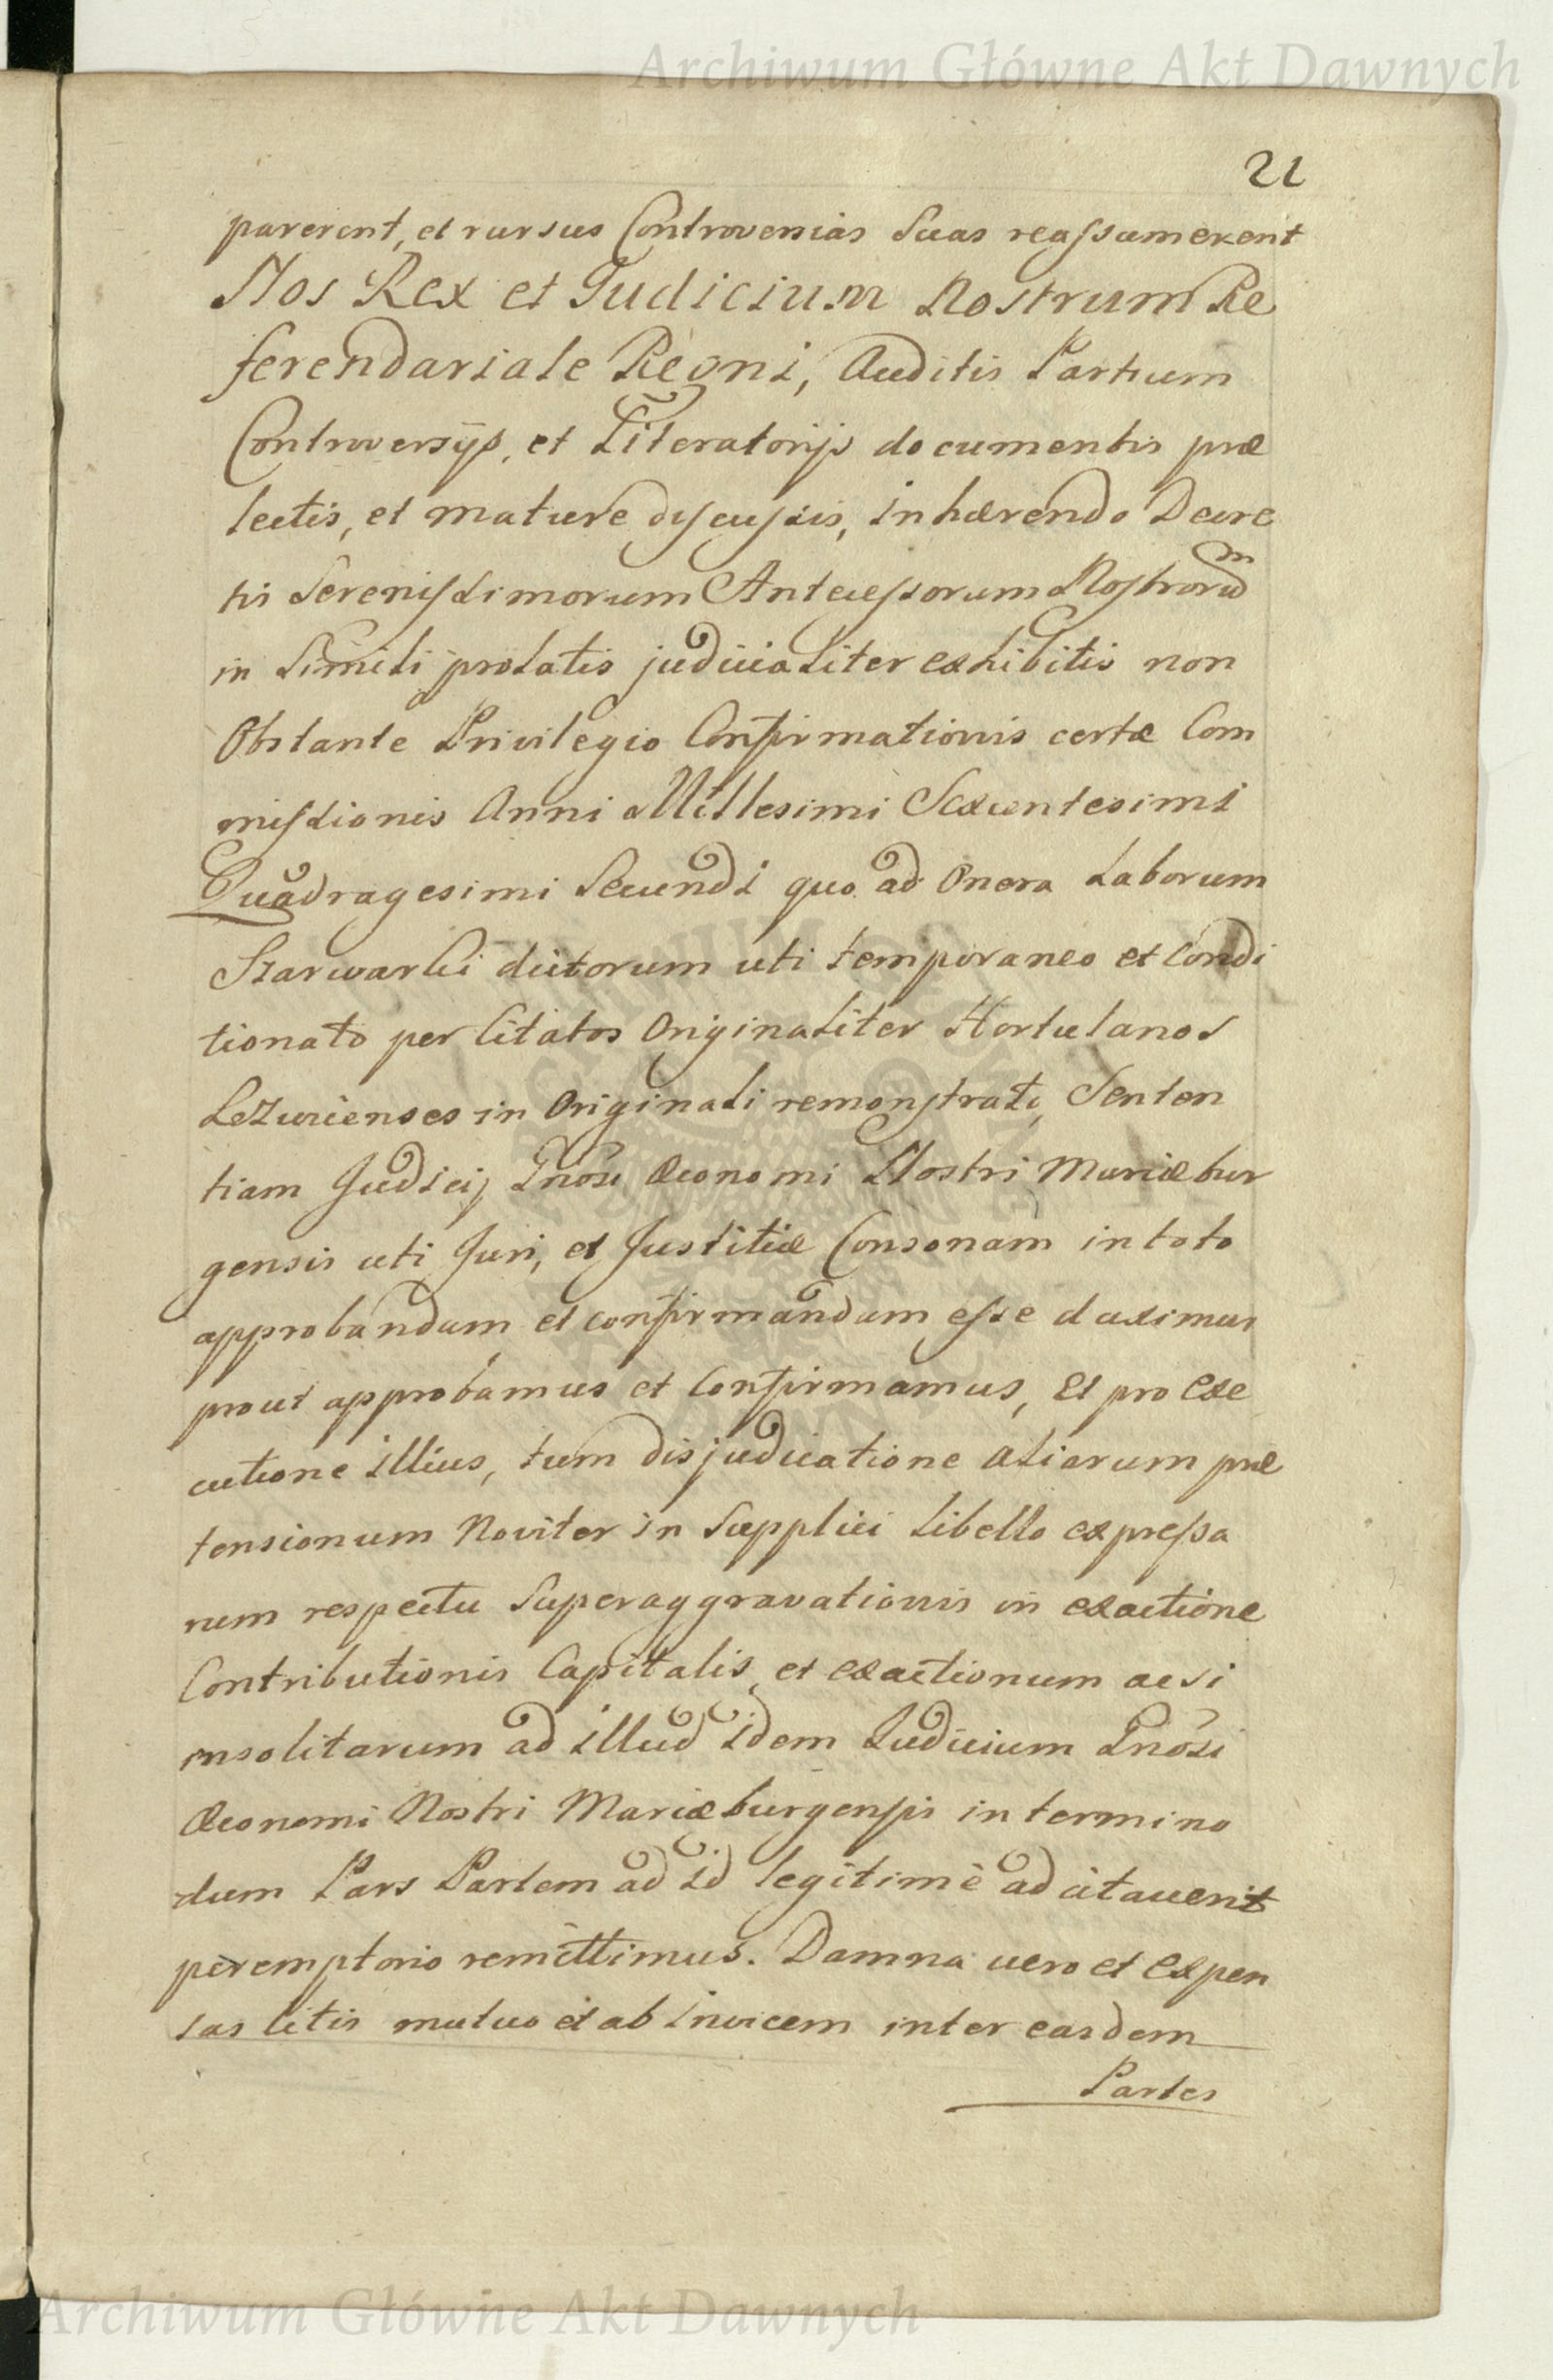 Archiwum Główne Akt Dawnych
21
parerent, et rursus Controversias Suas reassumerent
Nos Rex et Judicium Nostrum Re
ferendariale Regni, Auditis Partium
Controversijs, et Literatorijs documentis præ
lectis, et mature discussis, inhærendo Decre
tis Serenissimorum Antecessorum Nostrorum
in Simili prolatis judicialiter exhibitis non
Obstante Privilegio Confirmationis certæ Com
missionis Anni Millesimi Sexcentesimi
Quadragesimi Secundi quo ad Onera Laborum
Szarwarki dictorum uti temporaneo et Condi
tionato per Citatos Originaliter Hortulanos
Lezwicenses in Originali remonstrato, Senten
tiam Judicij Gnosi Œconomi Nostri Mariæbur
gensis uti Juri, et Justitiæ Consonam in toto
approbandam, et confirmandam esse duximus
prout approbamus et Confirmamus, Et pro Exe
cutione illius, tum disjudicatione aliarum præ
tensionum Noviter in Supplici Libello expressa
rum respectu Superaggravationis in exactione
Contributionis Capitalis, et exactionum acsi
insolitarum ad illud idem Judicium Gnosi
Œconomi Nostri Mariæburgensis in termino
dum Pars Partem ad id legitimè adcitaverit
peremptorio remittimus. Damna vero et Expen
sas litis mutuo et ab invicem inter easdem
Partes
Archiwum Główne Akt Dawnych